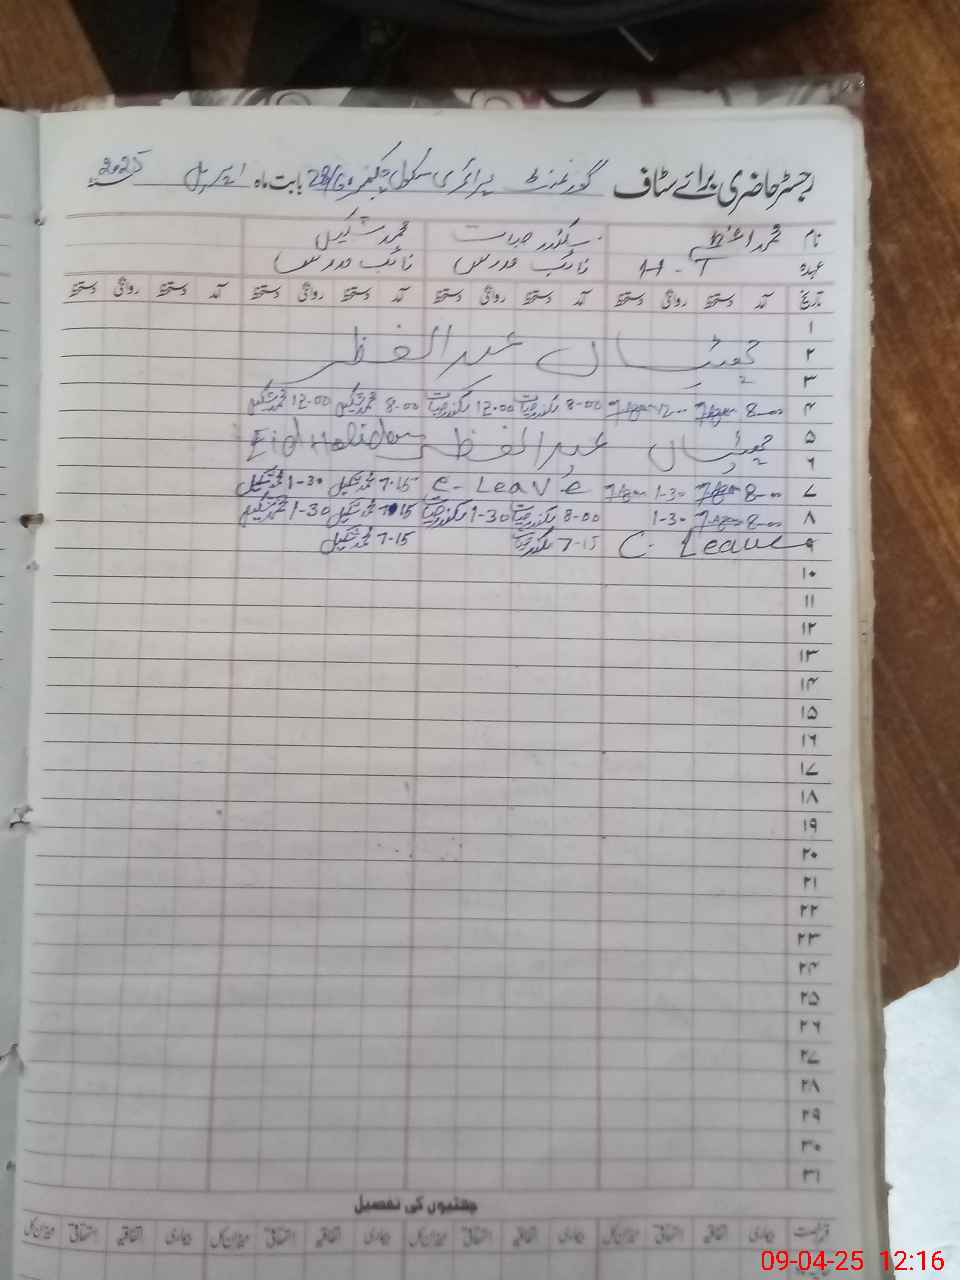 رجسٹر حاضری برائے سٹاف گورنمنٹ پرائمری سکول چکنمبر 28/G بابت ماہ اپریل 2025
نام محمد اعظم سکندر حیات محمد شکیل
عہدہ H-T نائب مدرس نائب مدرس
تاریخ آمد دستخط روانگی دستخط آمد دستخط روانگی دستخط آمد دستخط روانگی دستخط آمد دستخط روانگی دستخط
۱
۲ چھٹیاں عید الفطر
۳
۴ 8-00 12-00 8-00 سکندر حیات 12-00 سکندر حیات 8-00 محمد شکیل 12-00 محمد شکیل
۵ چھٹیاں عید الفطر Eid Holiday
۶
۷ 8-00 1-30 C-Leave 7-15 محمد شکیل 1-30 محمد شکیل
۸ 8-00 1-30 8-00 سکندر حیات 1-30 سکندر حیات 7-15 محمد شکیل 1-30 محمد شکیل
۹ C. Leave 7-15 سکندر حیات 7-15 محمد شکیل
۱۰
۱۱
۱۲
۱۳
۱۴
۱۵
۱۶
۱۷
۱۸
۱۹
۲۰
۲۱
۲۲
۲۳
۲۴
۲۵
۲۶
۲۷
۲۸
۲۹
۳۰
۳۱
چھٹیوں کی تفصیل
بیماری اتفاقیہ استحقاقی میزان کل بیماری اتفاقیہ استحقاقی میزان کل بیماری اتفاقیہ استحقاقی میزان کل بیماری اتفاقیہ استحقاقی میزان کل
09-04-25 12:16